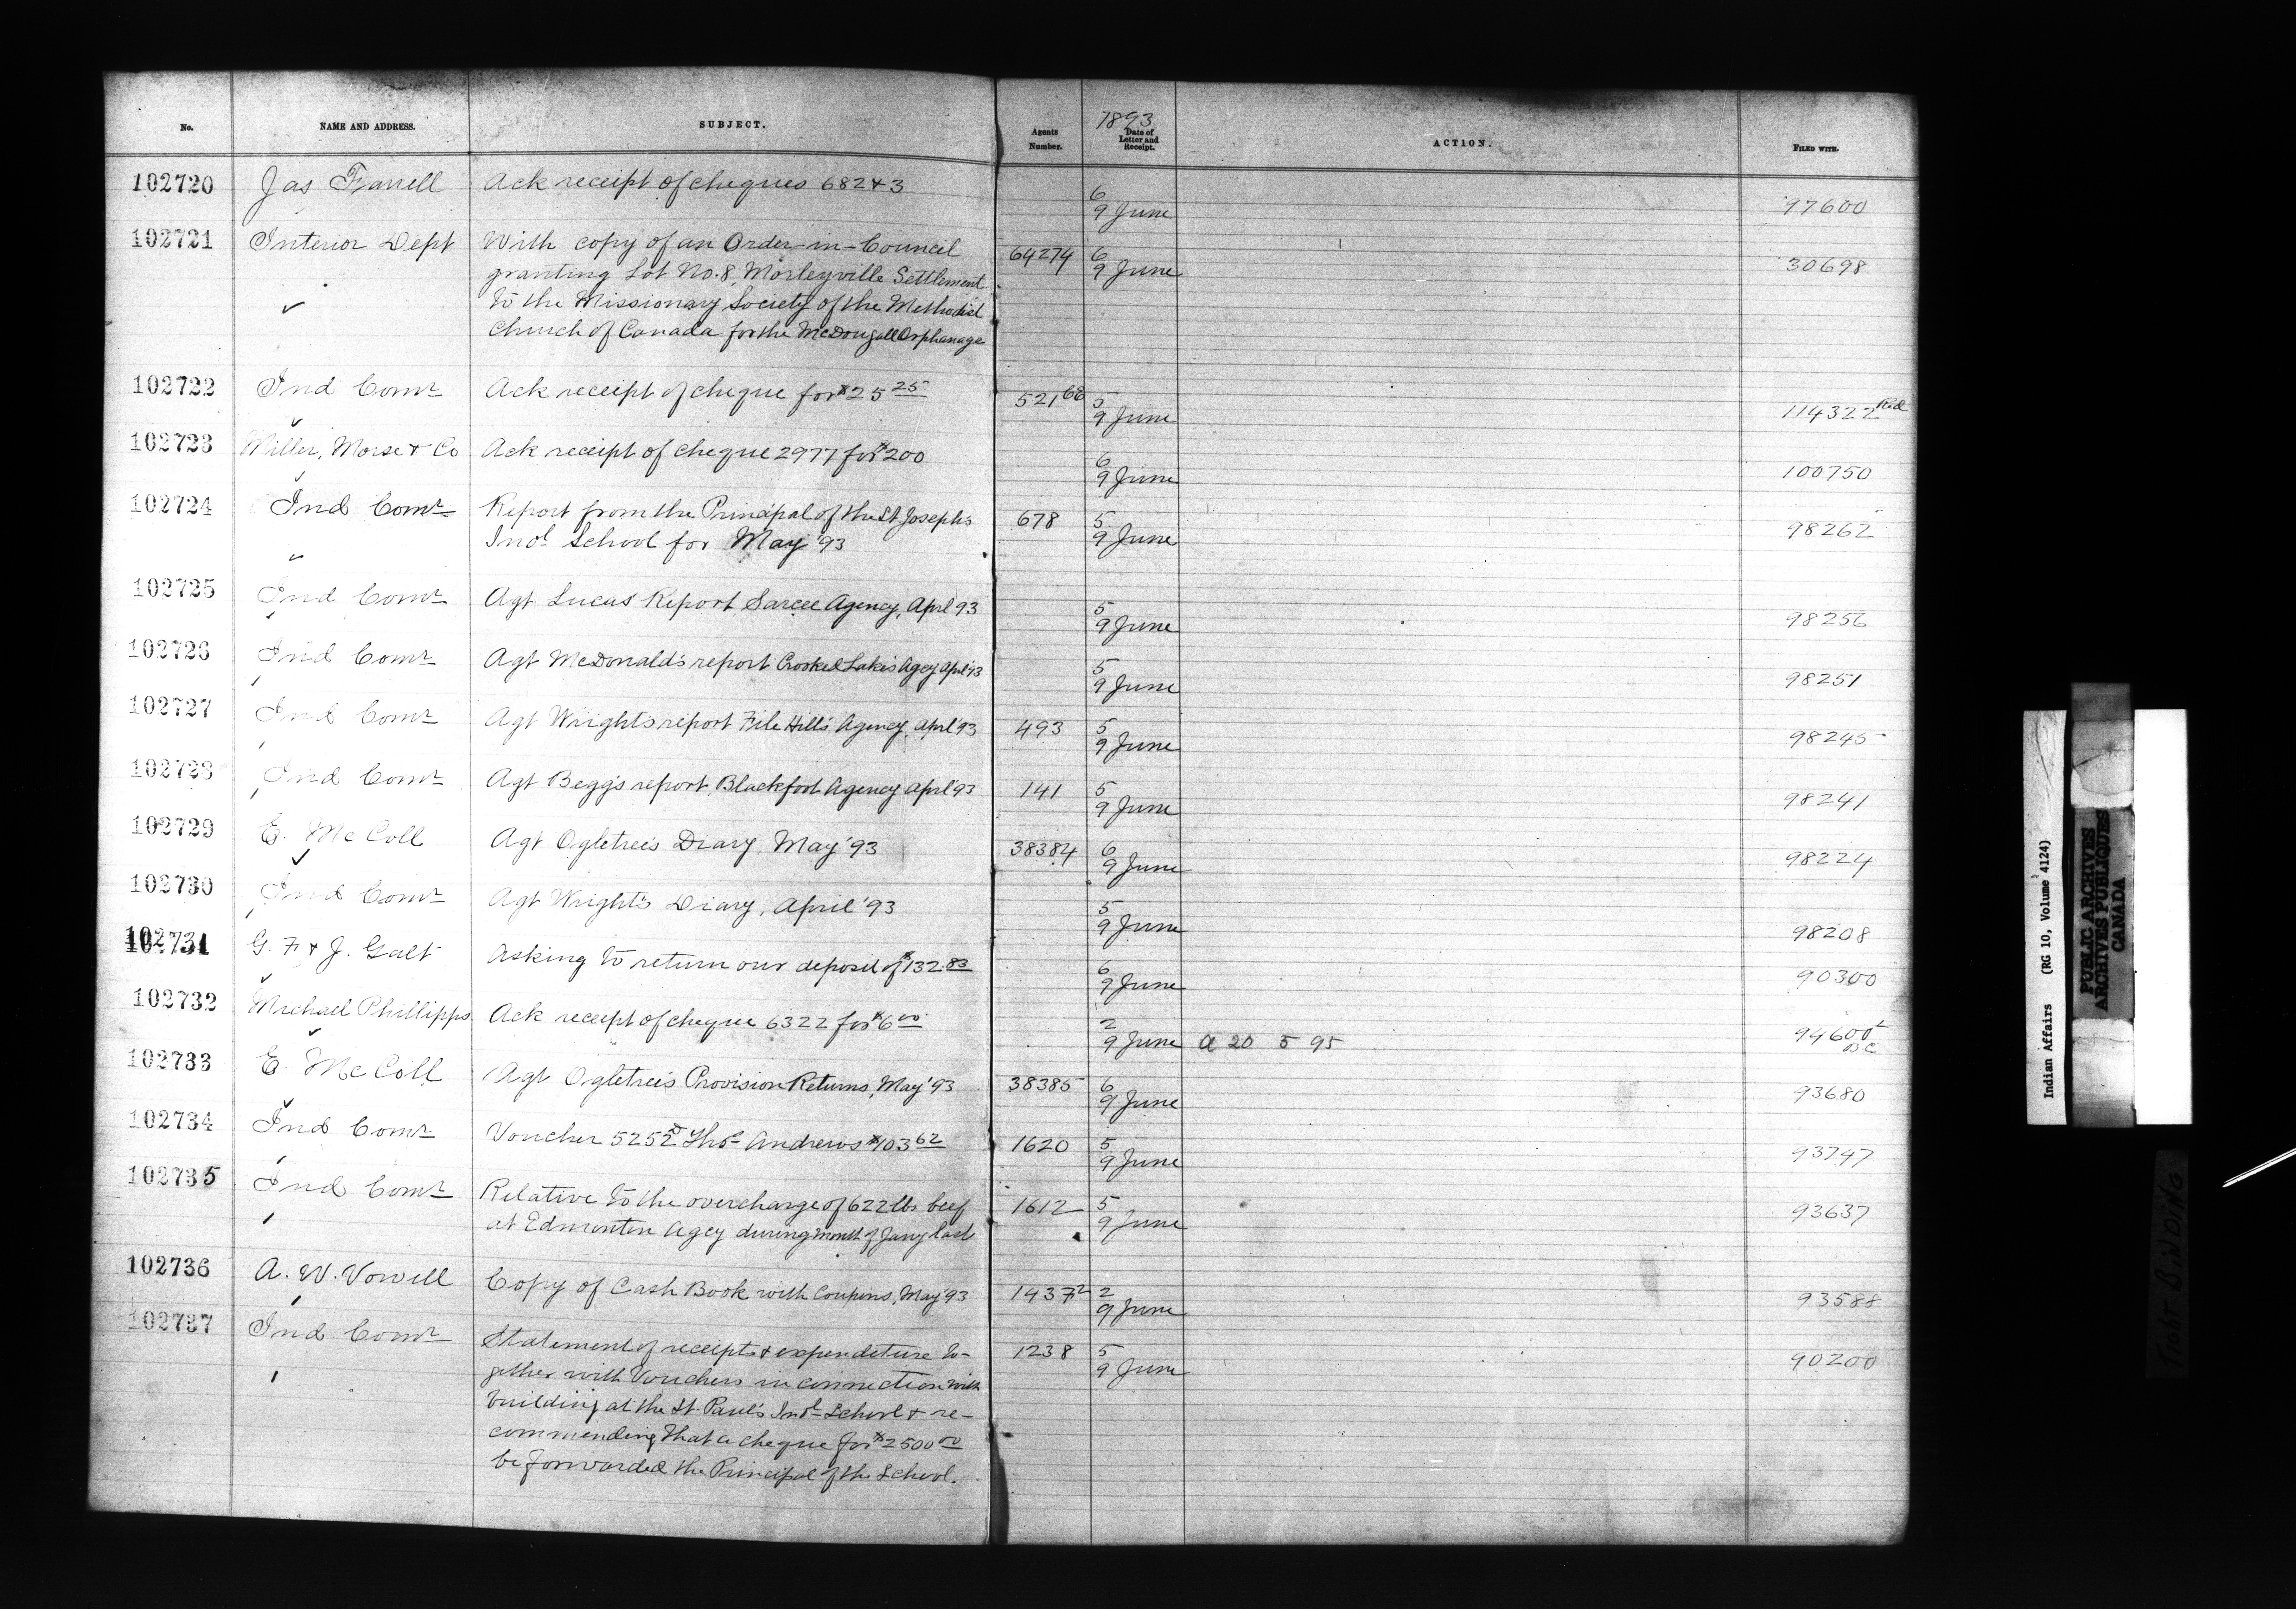 No. NAME AND ADDRESS. SUBJECT. Agents Number. 1893 Date of Letter and Receipt. ACTION. FILED WITH.
102720 Jas Farrell Ack receipt of cheques 682 & 3 6 97600
9 June
102721 Interior Dept With copy of an Order-in-Council 64274 6 30698
granting Lot No. 8, Morleyville Settlement 9 June
to the Missionary Society of the Methodist
Church of Canada for the McDougall Orphanage
102722 Ind Comr Ack receipt of cheque for $25 25 521 66 5 114322 Red
9 June
102723 Miller, Morse & Co Ack receipt of cheque 2977 for $200 6 100750
9 June
102724 Ind Comr Report from the Principal of the St Joseph's 678 5 98262
Indl School for May '93 9 June
102725 Ind Comr Agt Lucas' Report, Sarcee Agency, April 93 5 98256
9 June
102726 Ind Comr Agt McDonald's report Crooked Lakes Agcy April '93 5 98251
9 June
102727 Ind Comr Agt Wright's report File Hills Agency, April '93 493 5 98245
9 June
102728 Ind Comr Agt Begg's report, Blackfoot Agency April '93 141 5 98241
9 June
102729 E. McColl Agt Ogletree's Diary, May '93 38384 6 98224
9 June
102730 Ind Comr Agt Wright's Diary, April '93 5 98208
9 June
102731 G. F & J. Galt Asking to return our deposit of $132.83 6 90300
9 June
102732 Michael Phillipps Ack receipt of cheque 6322 for $6 00 2 94600 2 BC
9 June a 20 5 95
102733 E. McColl Agt Ogletree's Provision Returns, May '93 38385 6 93680
9 June
102734 Ind Comr Voucher 5252 Thos Andrews $103 62 1620 5 93747
9 June
102735 Ind Comr Relative to the overcharge of 622 lbs beef 1612 5 93637
at Edmonton Agcy during month of Jany last 9 June
102736 A. W. Vowell Copy of Cash Book with Coupons, May '93 1437 2 2 93588
9 June
102737 Ind Comr Statement of receipts & expenditure to- 1238 5 90200
gether with Vouchers in connection with 9 June
building at the St. Paul's Indl School & re-
commending that a cheque for $2500 00
be forwarded the Principal of the School.
Indian Affairs (RG 10, Volume 4124)
PUBLIC ARCHIVES
ARCHIVES PUBLIQUES
CANADA
TIGHT BINDING